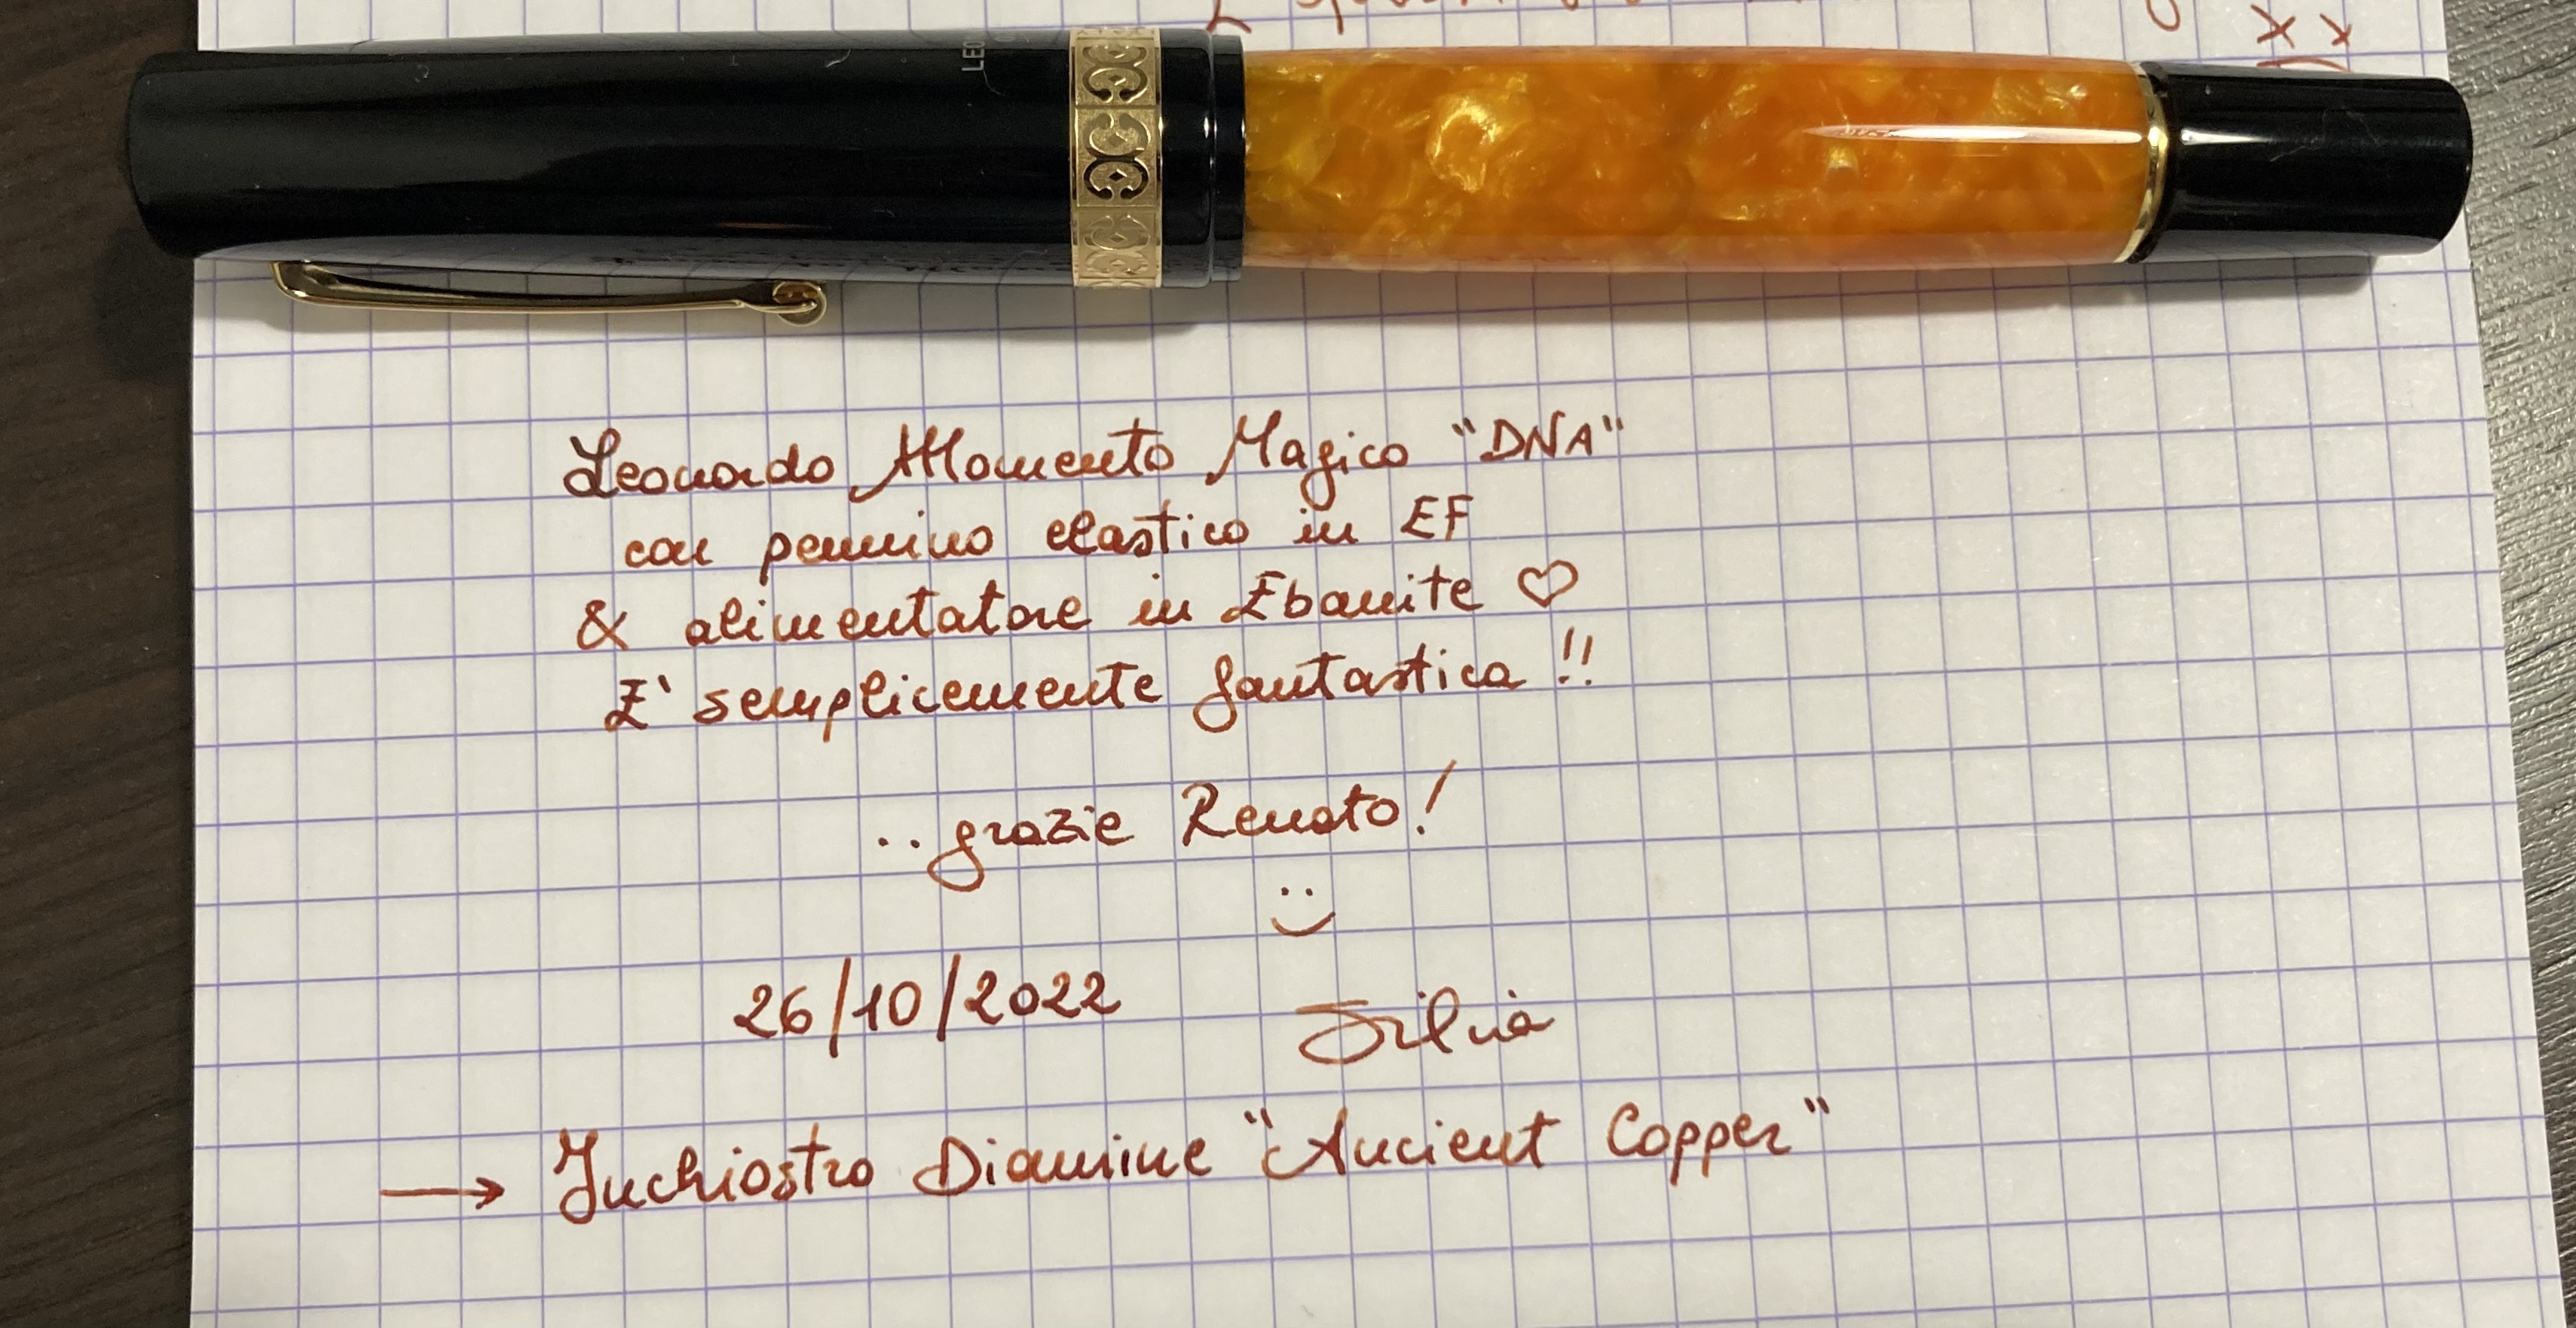 LEO
Leonardo Momento Magico "DNA"
con pennino elastico in EF
& alimentatore in Ebanite ♡
E' semplicemente fantastica !!
..grazie Renato!
26/10/2022 Silvia
→ Inchiostro Diamine "Ancient Copper"